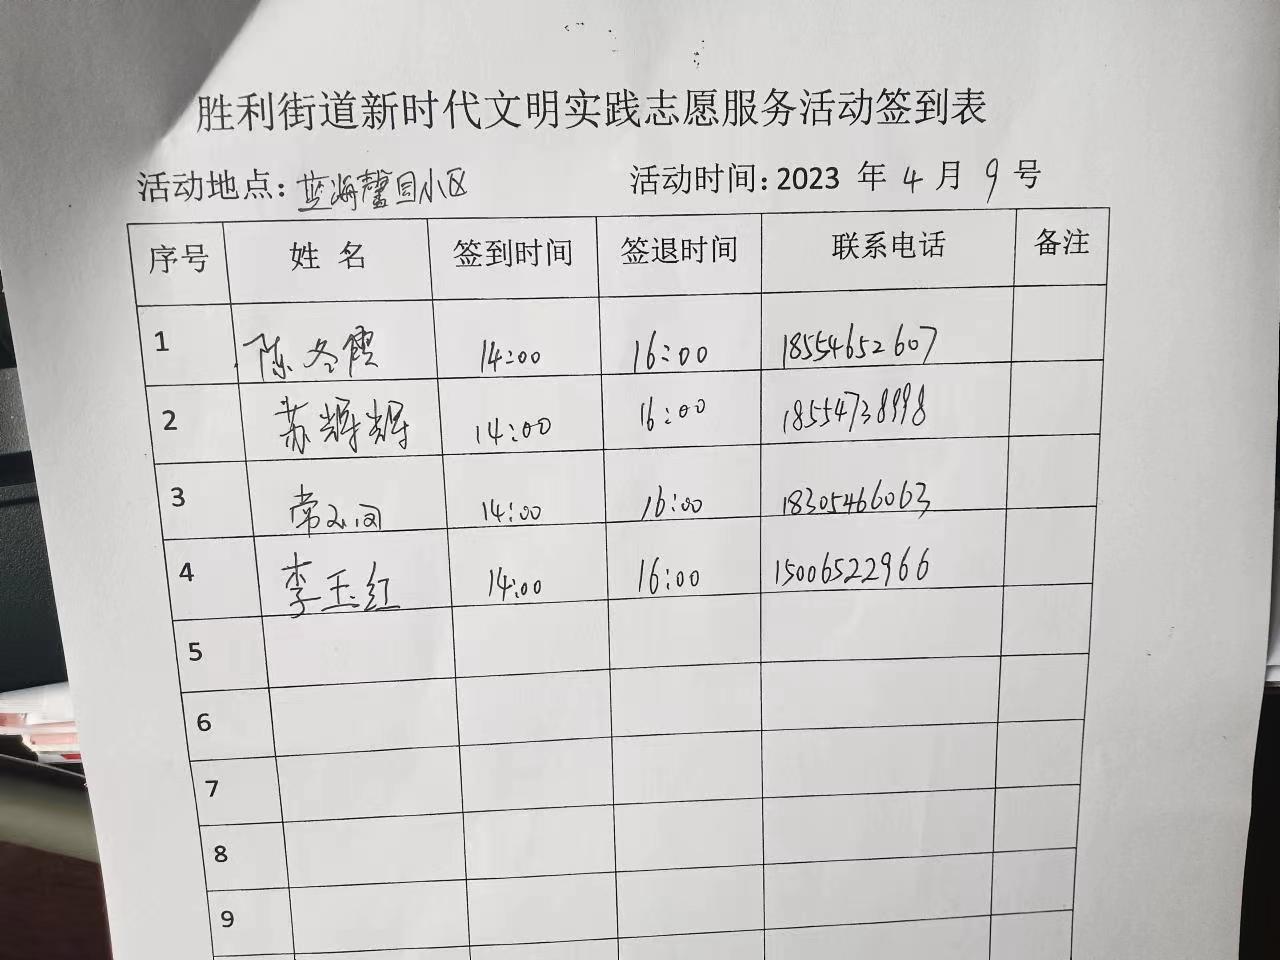 胜利街道新时代文明实践志愿服务活动签到表
活动地点：蓝海馨园小区 活动时间：2023 年 4 月 9 号
序号 姓 名 签到时间 签退时间 联系电话 备注
1 陈冬霞 14:00 16:00 18554652607
2 苏辉辉 14:00 16:00 18554738998
3 常 14:00 16:00 18305466063
4 李玉红 14:00 16:00 15006522966
5
6
7
8
9